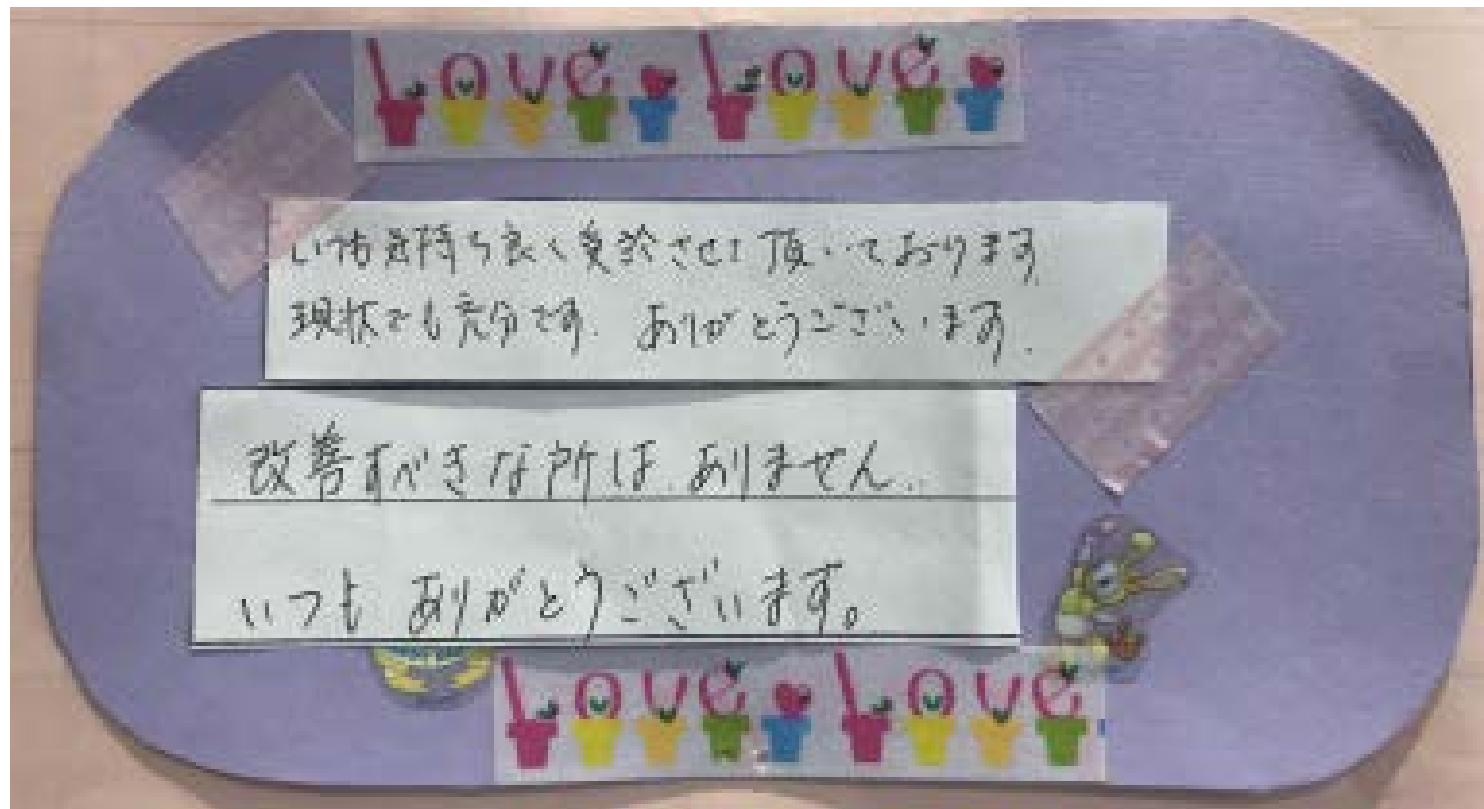 Love Love
いつも気持ち良く受診させて頂いております
現状でも充分です. ありがとうございます.
改善すべきな所は、ありません.
いつも ありがとうございます。
Love Love